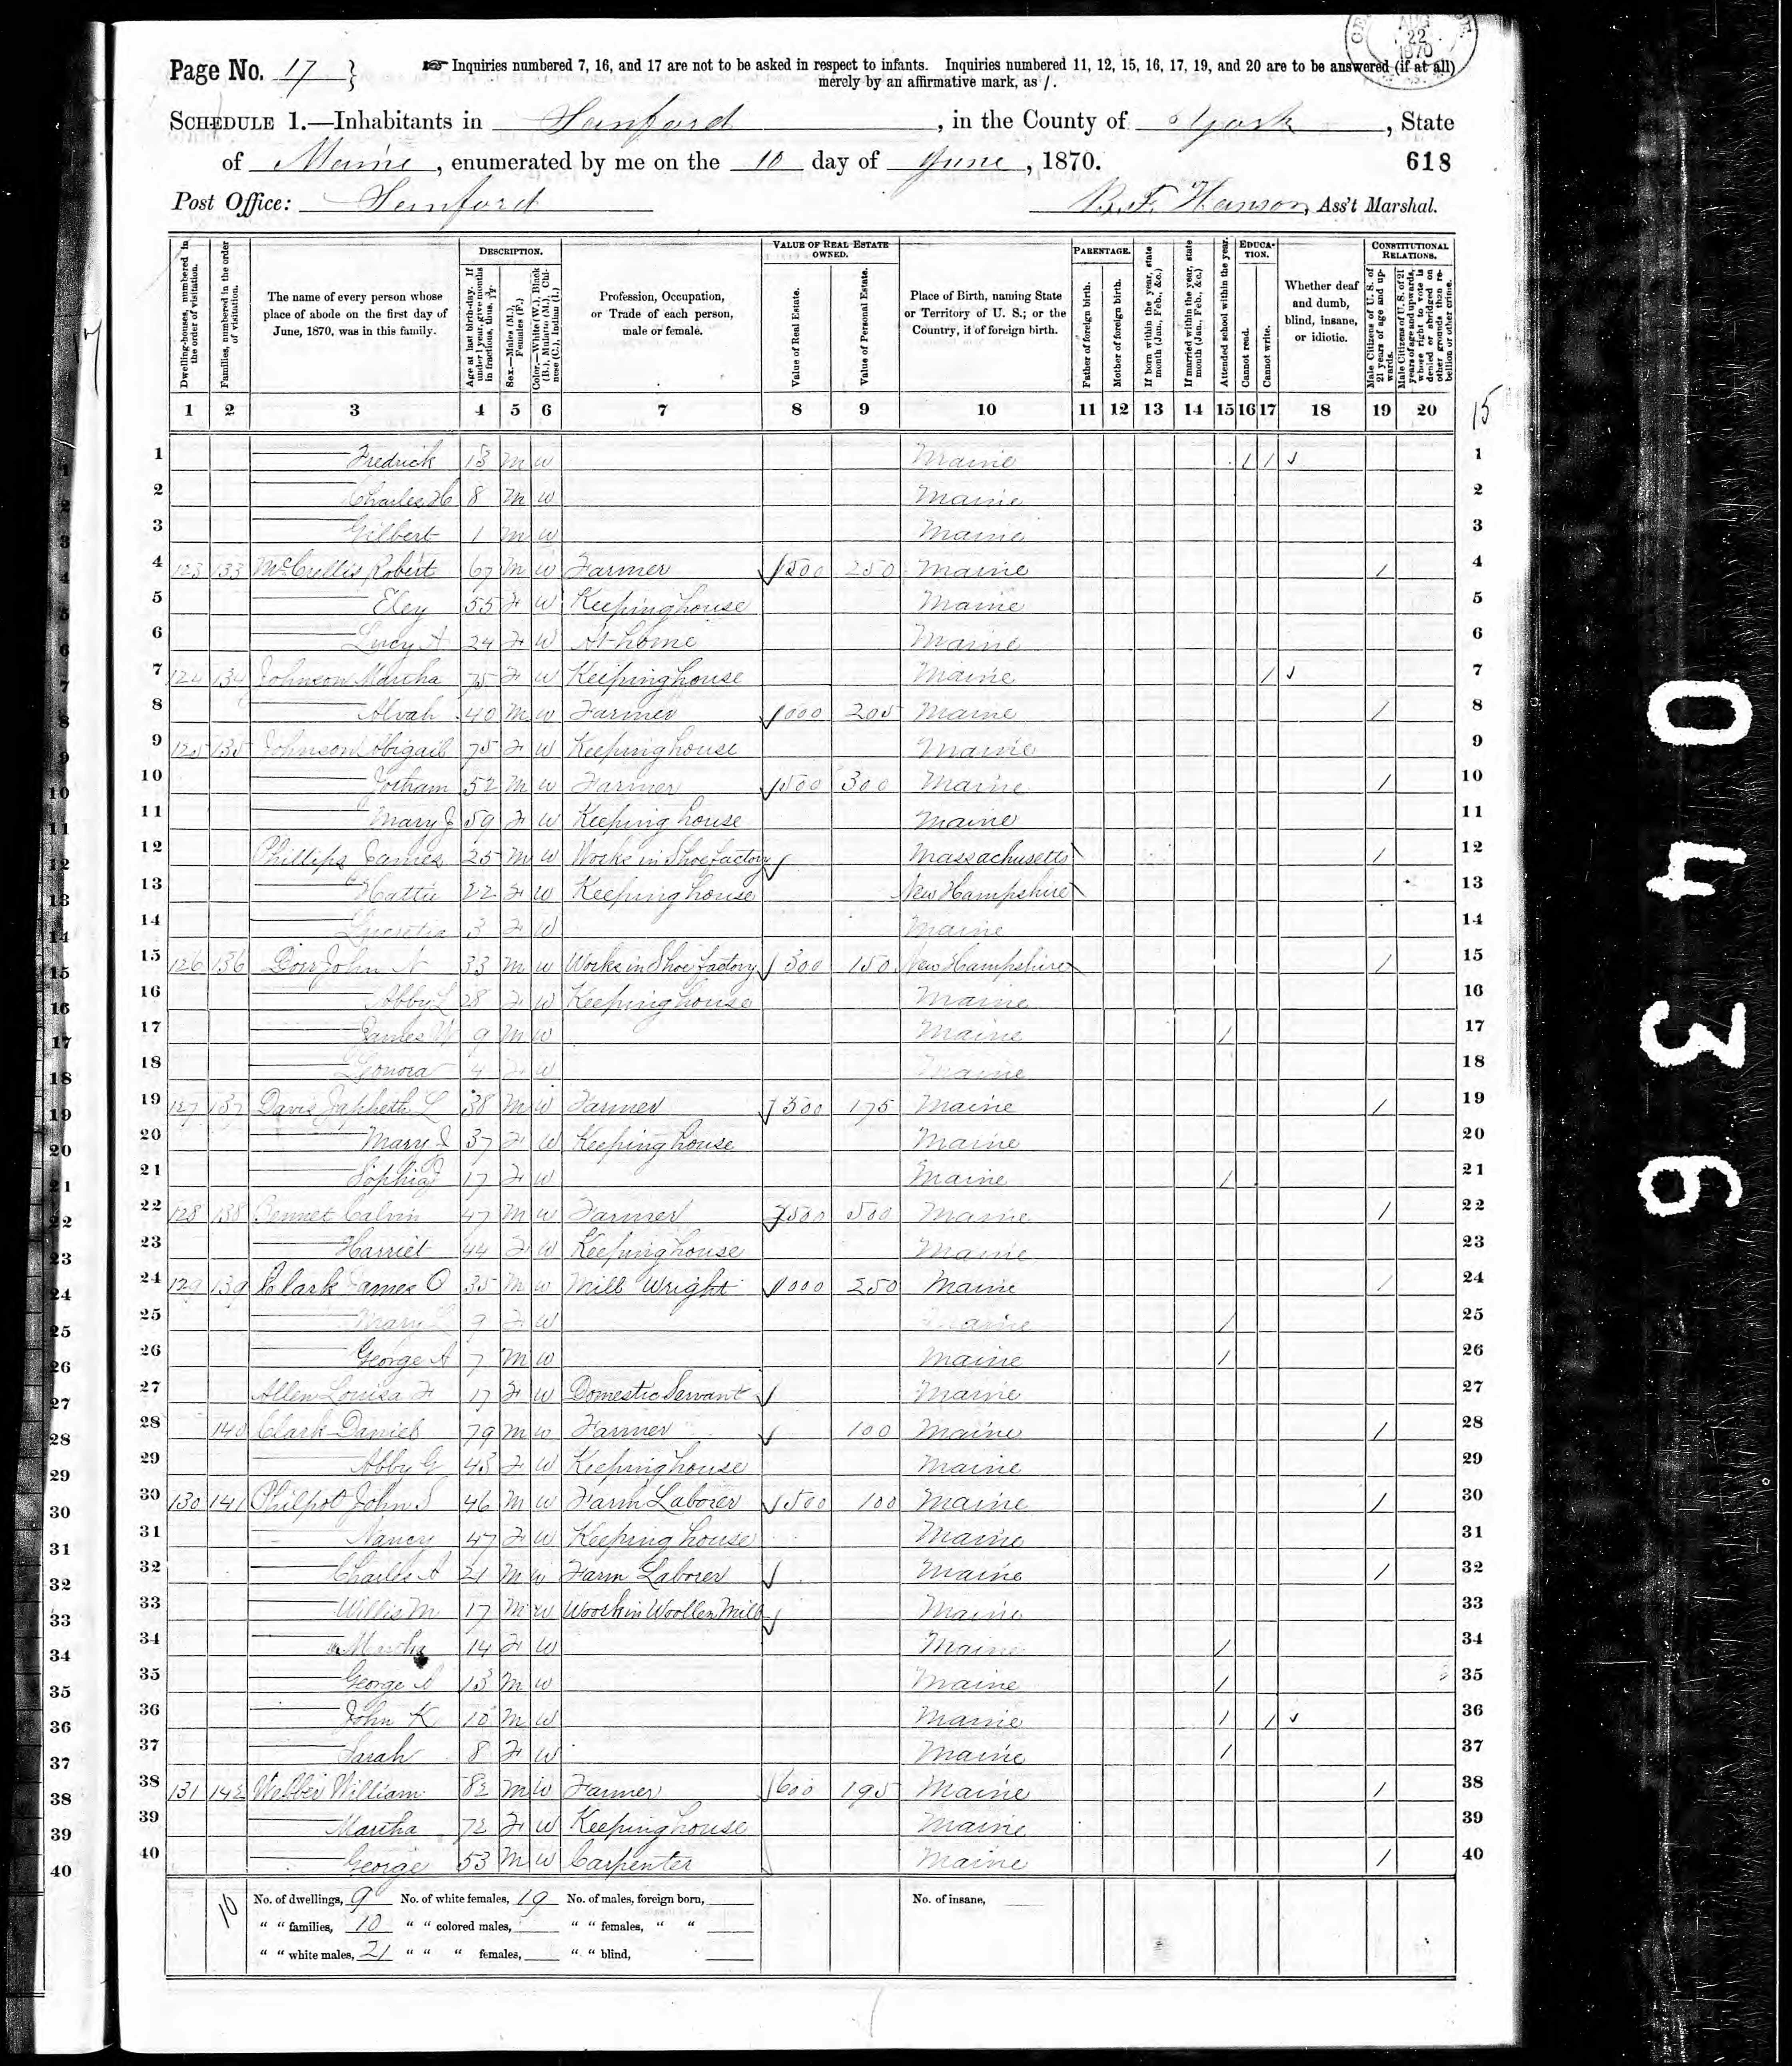 AUG 22 1870
Page No. 17 }
Inquiries numbered 7, 16, and 17 are not to be asked in respect to infants. Inquiries numbered 11, 12, 15, 16, 17, 19, and 20 are to be answered (if at all)
merely by an affirmative mark, as /.
SCHEDULE 1.—Inhabitants in Sanford, in the County of York, State
of Maine, enumerated by me on the 10 day of June, 1870. 618
Post Office: Sanford B. F. Hanson, Ass't Marshal.
Dwelling-houses, numbered in the order of visitation.
Families, numbered in the order of visitation.
The name of every person whose place of abode on the first day of June, 1870, was in this family.
DESCRIPTION.
Age at last birth-day. If under 1 year, give months in fractions, thus, 3/12.
Sex.—Males (M.), Females (F.)
Color.—White (W.), Black (B.), Mulatto (M.), Chinese (C.), Indian (I.)
Profession, Occupation, or Trade of each person, male or female.
VALUE OF REAL ESTATE OWNED.
Value of Real Estate.
Value of Personal Estate.
Place of Birth, naming State or Territory of U. S.; or the Country, if of foreign birth.
PARENTAGE.
Father of foreign birth.
Mother of foreign birth.
If born within the year, state month (Jan., Feb., &c.)
If married within the year, state month (Jan., Feb., &c.)
Attended school within the year.
EDUCATION.
Cannot read.
Cannot write.
Whether deaf and dumb, blind, insane, or idiotic.
CONSTITUTIONAL RELATIONS.
Male Citizens of U. S. of 21 years of age and upwards.
Male Citizens of U. S. of 21 years of age and upwards, whose right to vote is denied or abridged on other grounds than rebellion or other crime.
1 2 3 4 5 6 7 8 9 10 11 12 13 14 15 16 17 18 19 20
15
1 Fredrick 13 M W Maine / / ✓ 1
2 Charles H 8 M W Maine 2
3 Gilbert 1 M W Maine 3
4 123 133 McCrellis Robert 67 M W Farmer 1500 250 Maine / 4
5 Eley 55 F W Keeping house Maine 5
6 Lucy A 24 F W At home Maine 6
7 124 134 Johnson Martha 75 F W Keeping house Maine / ✓ 7
8 Alvah 40 M W Farmer 1000 200 Maine / 8
9 125 135 Johnson Abigail 75 F W Keeping house Maine 9
10 Jotham 52 M W Farmer 1500 300 Maine / 10
11 Mary J 59 F W Keeping house Maine 11
12 Phillips James 25 M W Works in Shoe factory Massachusetts / 12
13 Hattie 22 F W Keeping house New Hampshire 13
14 Lucretia 3 F W Maine 14
15 126 136 Dorr John N 33 M W Works in Shoe factory 300 150 New Hampshire / 15
16 Abby L 28 F W Keeping house Maine 16
17 James W 9 M W Maine / 17
18 Lonora 4 F W Maine 18
19 127 137 Davis Japheth L 38 M W Farmer 300 175 Maine / 19
20 Mary J 37 F W Keeping house Maine 20
21 Sophia 17 F W Maine / 21
22 128 138 Bennet Calvin 47 M W Farmer 2500 500 Maine / 22
23 Harriet 44 F W Keeping house Maine 23
24 129 139 Clark James O 35 M W Mill Wright 1000 250 Maine / 24
25 Mary L 9 F W Maine / 25
26 George A 7 M W Maine / 26
27 Allen Louisa F 17 F W Domestic Servant Maine 27
28 140 Clark Daniel 79 M W Farmer 100 Maine / 28
29 Abby G 43 F W Keeping house Maine 29
30 130 141 Philpot John S 46 M W Farm Laborer 500 100 Maine / 30
31 Nancy 47 F W Keeping house Maine 31
32 Charles A 21 M W Farm Laborer Maine / 32
33 Willis M 17 M W Work in Woollen Mill Maine 33
34 Martha 14 F W Maine / 34
35 George 13 M W Maine / 35
36 John K 10 M W Maine / / ✓ 36
37 Sarah 8 F W Maine / 37
38 131 142 Webber William 82 M W Farmer 600 195 Maine / 38
39 Martha 72 F W Keeping house Maine 39
40 George 53 M W Carpenter Maine / 40
10
No. of dwellings, 9 No. of white females, 19 No. of males, foreign born, No. of insane,
" " families, 10 " " colored males, " " females, " "
" " white males, 21 " " " females, " " blind,
0436